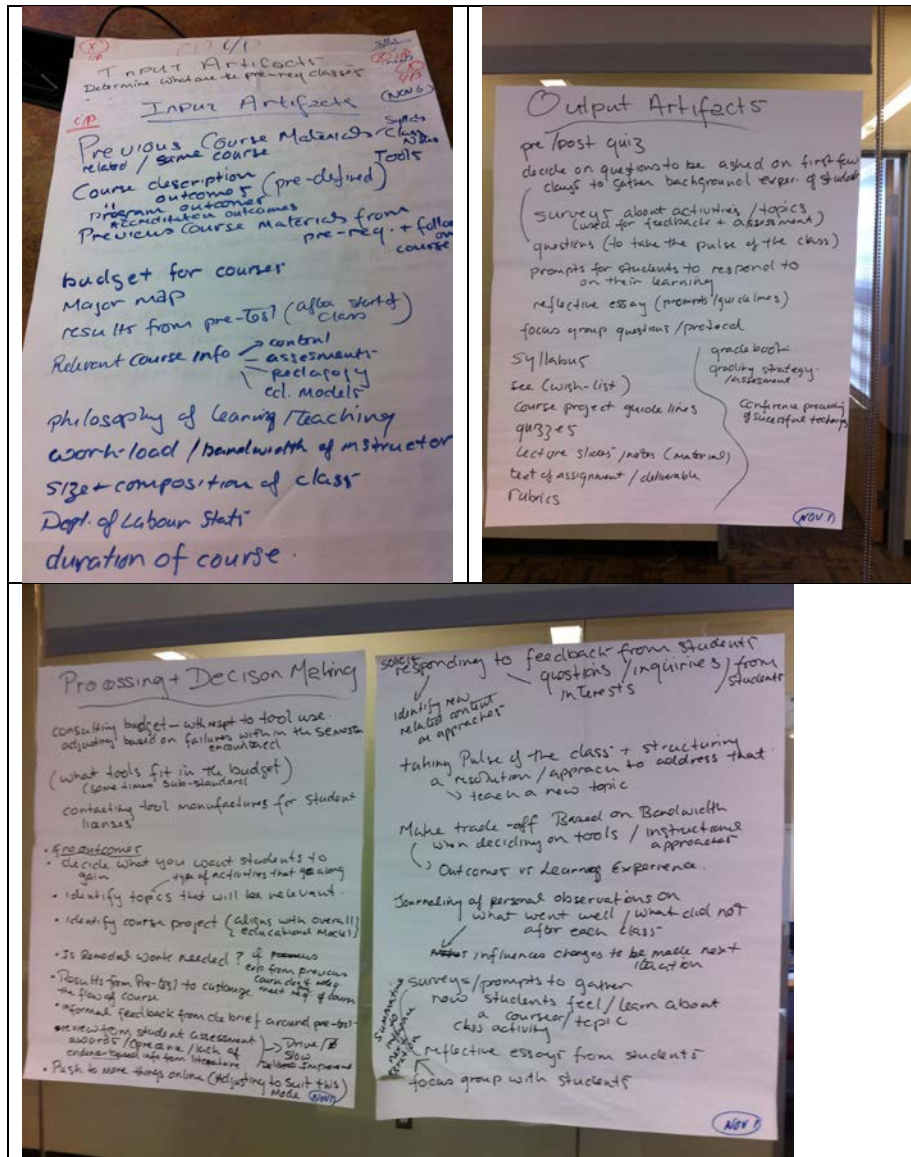 I/P
INPUT Artifacts
Determine what are the pre-req classes
INPUT Artifacts
(NOV 6)
I/P
Previous Course Materials
related / same course
Syllabus
Class
Notes
Tools
Course description
" outcomes (pre-defined)
program outcomes
Accreditation outcomes
Previous Course Materials from
pre-req. + follow
on
course
budget for courses
Major map
results from pre-Test (after start of
class)
Relevant Course Info
content
assesments
pedagogy
ed. models
philosophy of learning/teaching
work-load / bandwidth of instructor
size + composition of class
Dept. of Labour Stats
duration of course.
Output Artifacts
pre/post quiz
decide on questions to be asked on first few
days to gather background exper. of students
surveys about activities / topics
(used for feedback + assessment)
questions (to take the pulse of the class)
prompts for students to respond to
on their learning
reflective essay (prompts/guidelines)
focus group questions / protocol
Syllabus
see (wish-list)
course project guidelines
quizzes
lecture slides / notes (material)
text of assignment / deliverable
rubrics
gradebook
grading strategy
/assesment
Conference proceeding
of sucessful techniqs
(NOV 1)
Processing + Decison Making
consulting budget – with respt to tool use.
adjusting based on failures within the semester
encountered
(what tools fit in the budget)
(some times sub-standard)
contacting tool manufactures for student
licenses
outcomes
• decide what you want students to
gain
type of activities that go along
• identify topics that will be relevant.
• identify course project (aligns with overall
educational model)
• Is Remedial work needed? if
exp from previous
course don't
meet req. of course
• Results from Pre-test to customize
the flow of course
• informal feedback from debrief around pre-test
• review from student assessment
awards / / lack of
info from literature
Drive /
Slow
Improvement
• Push to more things online (Adjusting to suit this)
Mode
(NOV 1)
solicit
responding to feedback from students
questions / inquiries / from
interests students
identify new
related content
or approaches
taking Pulse of the class + structuring
a resolution / approach to address that
teach a new topic
Make trade-off Based on Bandwidth
when deciding on tools / instructional
approaches
Outcomes vs Learning Experience.
Journaling of personal observations on
what went well / what did not
after each class
influences changes to be made next
iteration
surveys/prompts to gather
how students feel / learn about
a course / topic
class activity
Summative
reflective essays from students
focus group with students
(NOV 1)